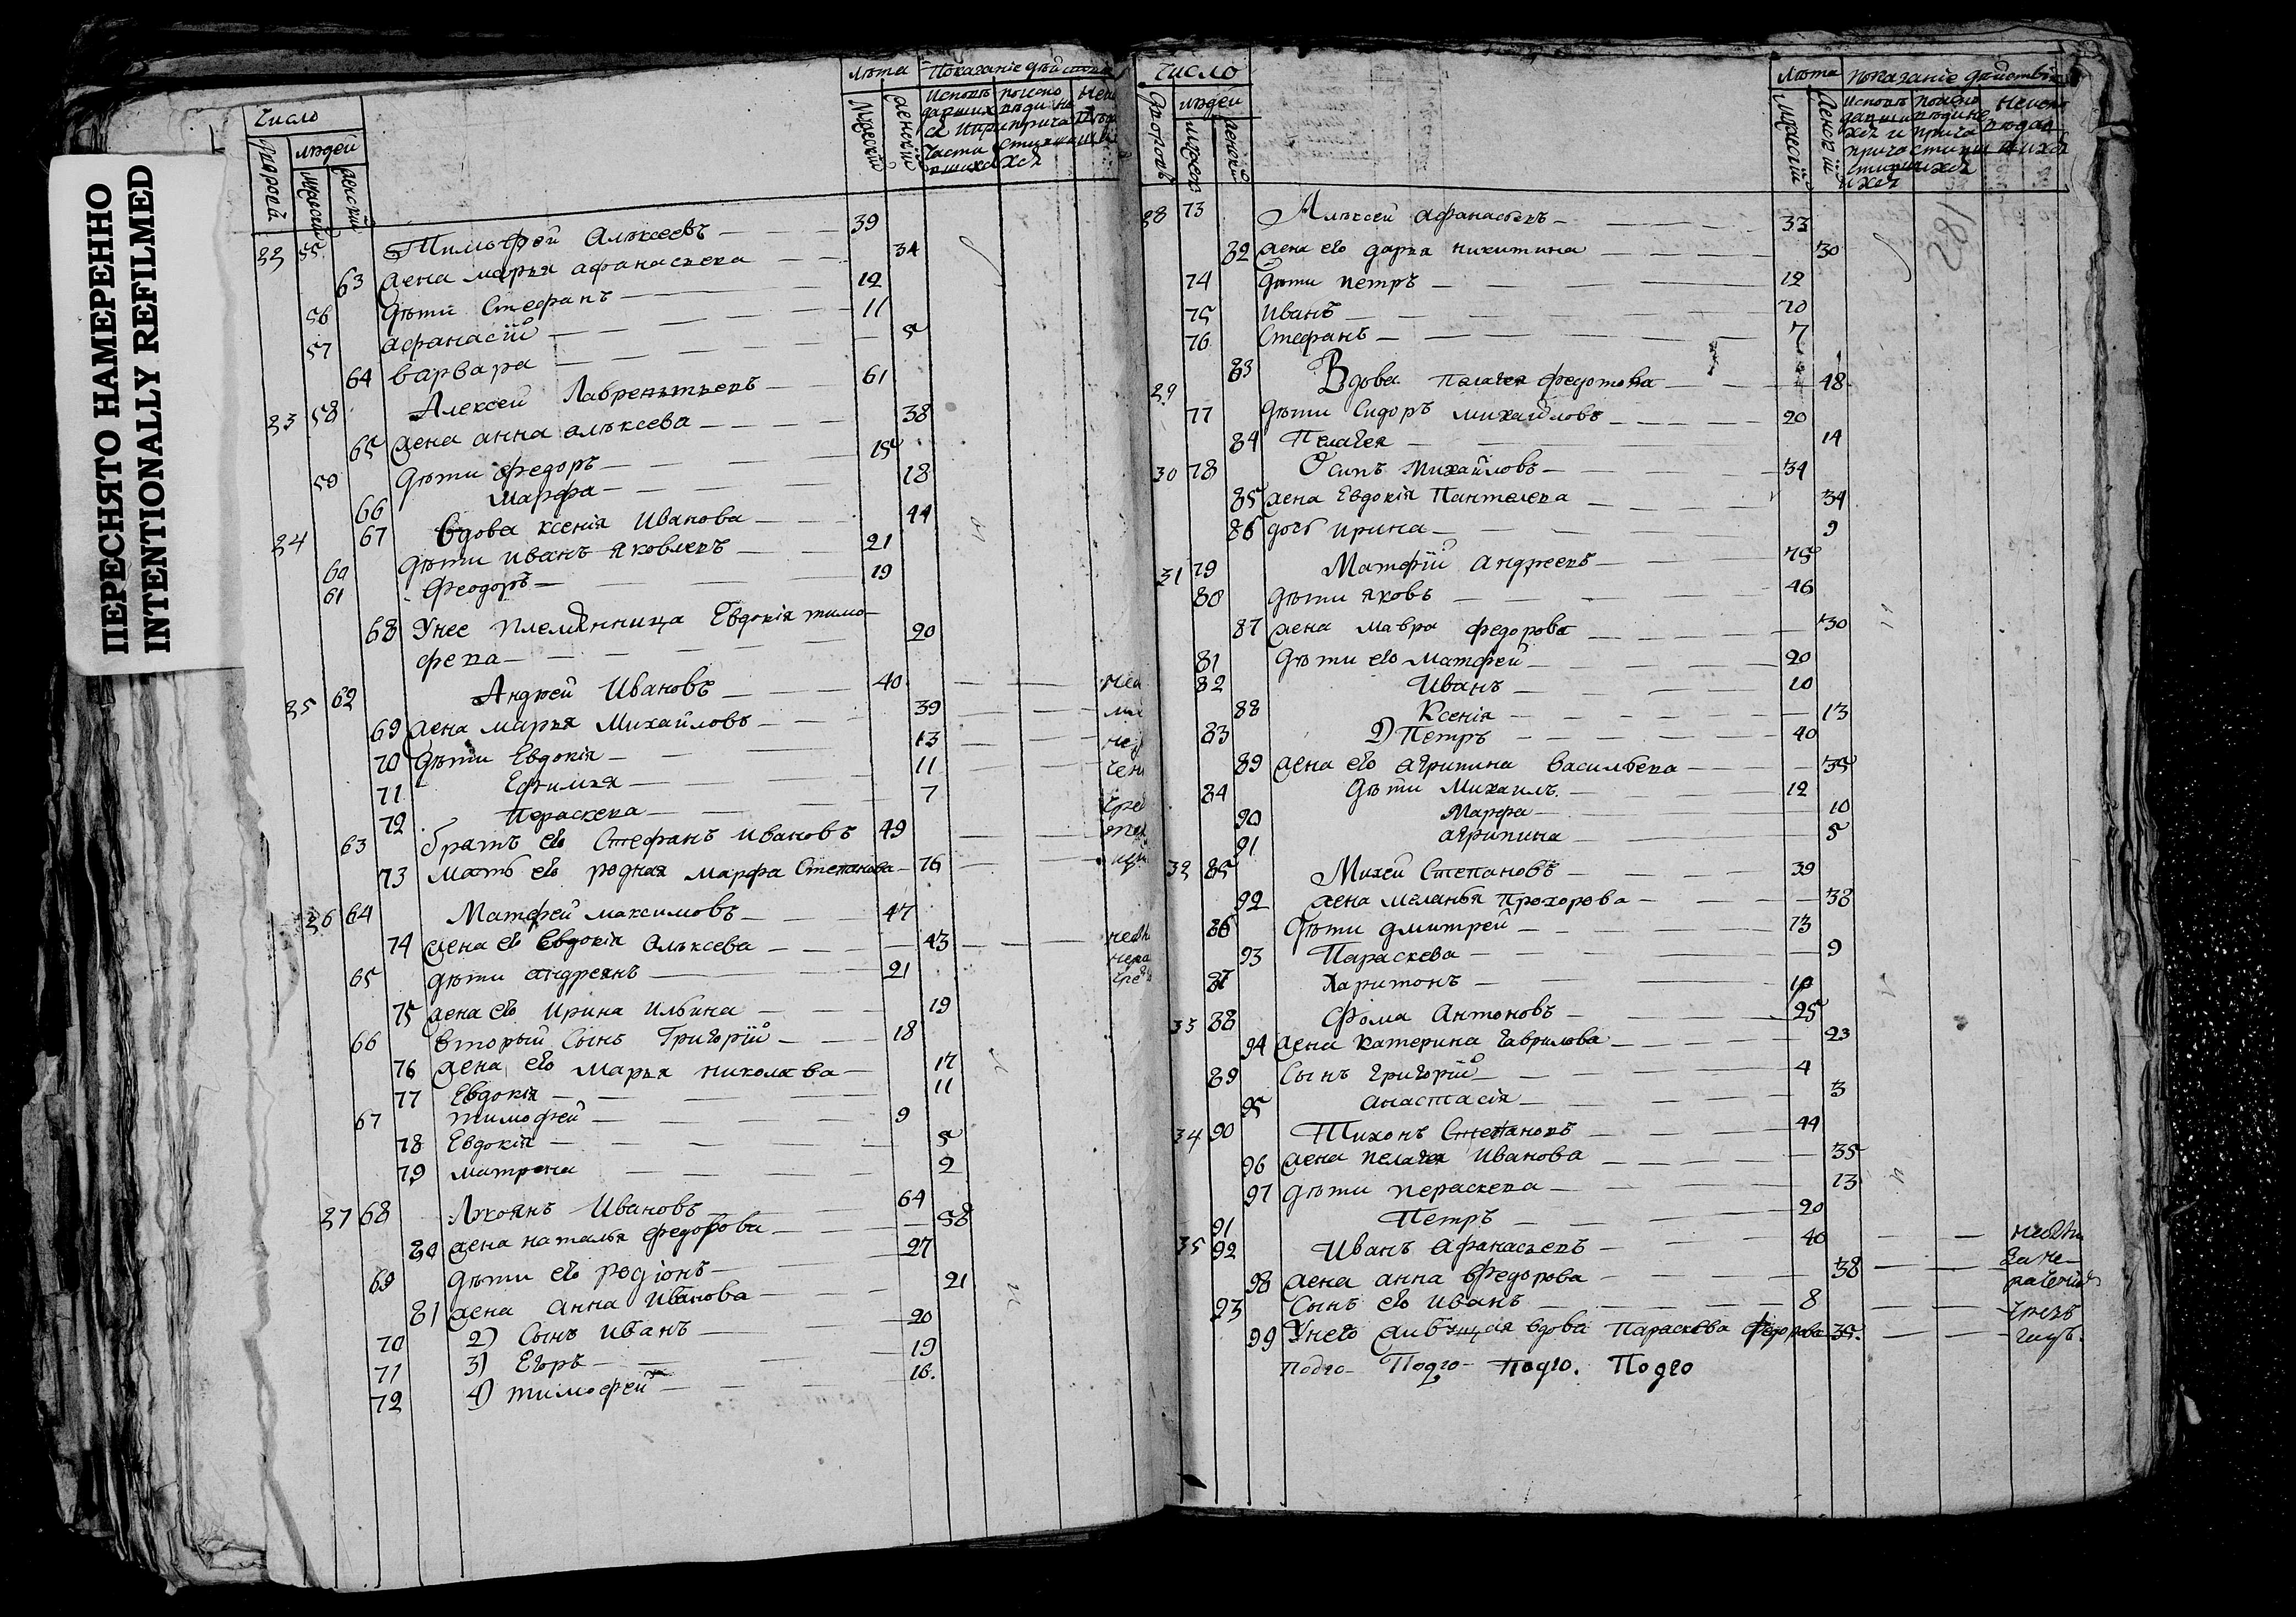 ПЕРЕСНЯТО НАМЕРЕННО
INTENTIONALLY REFILMED
Число
людей
Дворовъ
мужескій
женскій
лѣта
Показаніе дѣйства
Мужескій
женскій
22 55 Тимофей Алѣксеевъ 39
63 жена марья афанасьева 34
56 дѣти Стефанъ 12
57 афанасій 11
64 варвара 5
23 58 Алексей Лаврентьевъ 61
65 жена анна алѣксева 38
59 дѣти федоръ 15
66 марфа 18
24 67 вдова ксенія Иванова 44
60 дѣти иванъ яковлевъ 21
61 феодоръ 19
68 Унее племянница Евдокія тимо
фева 20
25 62 Андрей Ивановъ 40
69 жена марья Михайловъ 39
70 дѣти Евдокія 13
71 Ефимья 11
72 Параскева 7
63 братъ его Стефанъ ивановъ 49
73 мать его родная марфа Степанова 76
26 64 Матфей максимовъ 47
74 жена его Евдокія алѣксева 43
65 дѣти андреянъ 21
75 жена его Ирина Ильина 19
66 вторый Сынъ Григорій 18
76 жена его марья николаева 17
77 Евдокія 11
67 тимофей 9
78 Евдокія 5
79 матрена 2
27 68 Ивановъ 64
80 жена наталья федорова 58
69 дѣти его родіонъ 27
81 жена Анна Иванова 21
70 2) Сынъ иванъ 20
71 3) Егоръ 19
72 4) тимофей 16.
Число
людей
Дворовъ
женскій
Лѣта показаніе дѣйства
мужескій
Женскій
182
28 73 Алѣксей афанасьевъ 33
82 жена его дарья никитина 30
74 дѣти петръ 12
75 иванъ 10
76 Стефанъ 7
29 83 Вдова пелагея федотова 48
77 дѣти Сидоръ михайловъ 20
84 Пелагея 14
30 78 Осипъ михайловъ 34
85 жена Евдокія Пантелева 34
86 дочь ирина 9
31 79 Матфій андреевъ 75
80 дѣти яковъ 46
87 жена мавра федорова 30
81 дѣти его матфей 20
82 Иванъ 10
88 Ксенія 13
83 2) Петръ 40
89 жена его агрипина васильева 35
84 дѣти Михаилъ 12
90 Марфа 10
91 агрипина 5
32 85 Михей Степановъ 39
92 жена меланья прохорова 38
86 дѣти дмитрей 13
93 Параскева 9
87 Харитонъ
33 88 Фома Антоновъ 25
94 жена Катерина Гаврилова 23
89 Сынъ григорій 4
95 анастасія 3
34 90 Тихонъ Степановъ 44
96 жена пелагея Иванова 35
97 дѣти пераскева 13
91 Петръ 20
35 92 Иванъ афанасьевъ 40
98 жена анна федорова 38
93 Сынъ его иванъ 8
99 Унего вдова Параскева федорова 35.